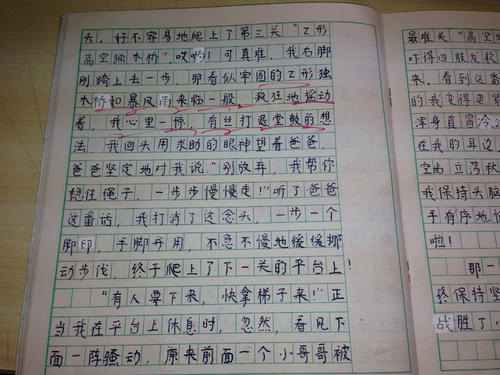 关，好不容易地爬上了第三关“Z形
高空独木桥”，哎哟！可真难，我右脚
刚踏上去一步，那看似牢固的Z形独
木桥如暴风雨来临一般，疯狂地摇动
着，我心里一惊，有丝打退堂鼓的想
法，我回头用求助的眼神望着爸爸，
爸爸坚定地对我说：“别放弃，我帮你
稳住绳子，一步步慢慢走！”听了爸爸
这番话，我打消了这念头，一步一个
脚印，手脚并用，不急不慢地缓缓挪
动步伐，终于爬上了下一关的平台上！
“有人要下来，快拿梯子来！”正
当我在平台上休息时，忽然，看见下
面一阵骚动，原来前面一个小哥哥被
最难关“高空
吓得四肢发软
来，看到这番
的我变得更
浑身直冒冷
在我的耳边
空的立荡秋
我保持头脑
手有序地
啦！
那一
终保持坚
战胜了，